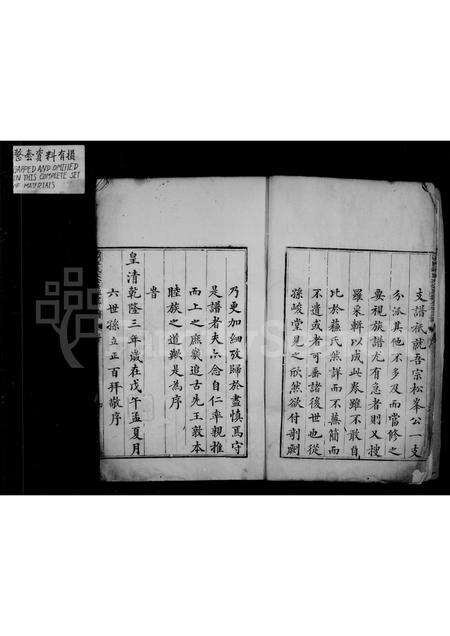 整套資料有損
DAMAGED AND OMITTED
IN THIS COMPLETE SET
OF MATERIALS
支譜祇就吾宗松峯公一支
分派其他不多及而當修之
要視族譜尤有急者則又搜
羅采輯以成此卷雖不敢自
比於蘇氏然詳而不蕪簡而
不遺或者可番諸後世也從
孫峻堂見之欣然欲付剞劂
乃更加細攷歸於盡慎焉守
是譜者夫亦念自仁率親推
而上之庶幾追古先王敦本
睦族之道歟是為序
告
皇清乾隆三年歲在戊午孟夏月
六世孫立正百拜敬序